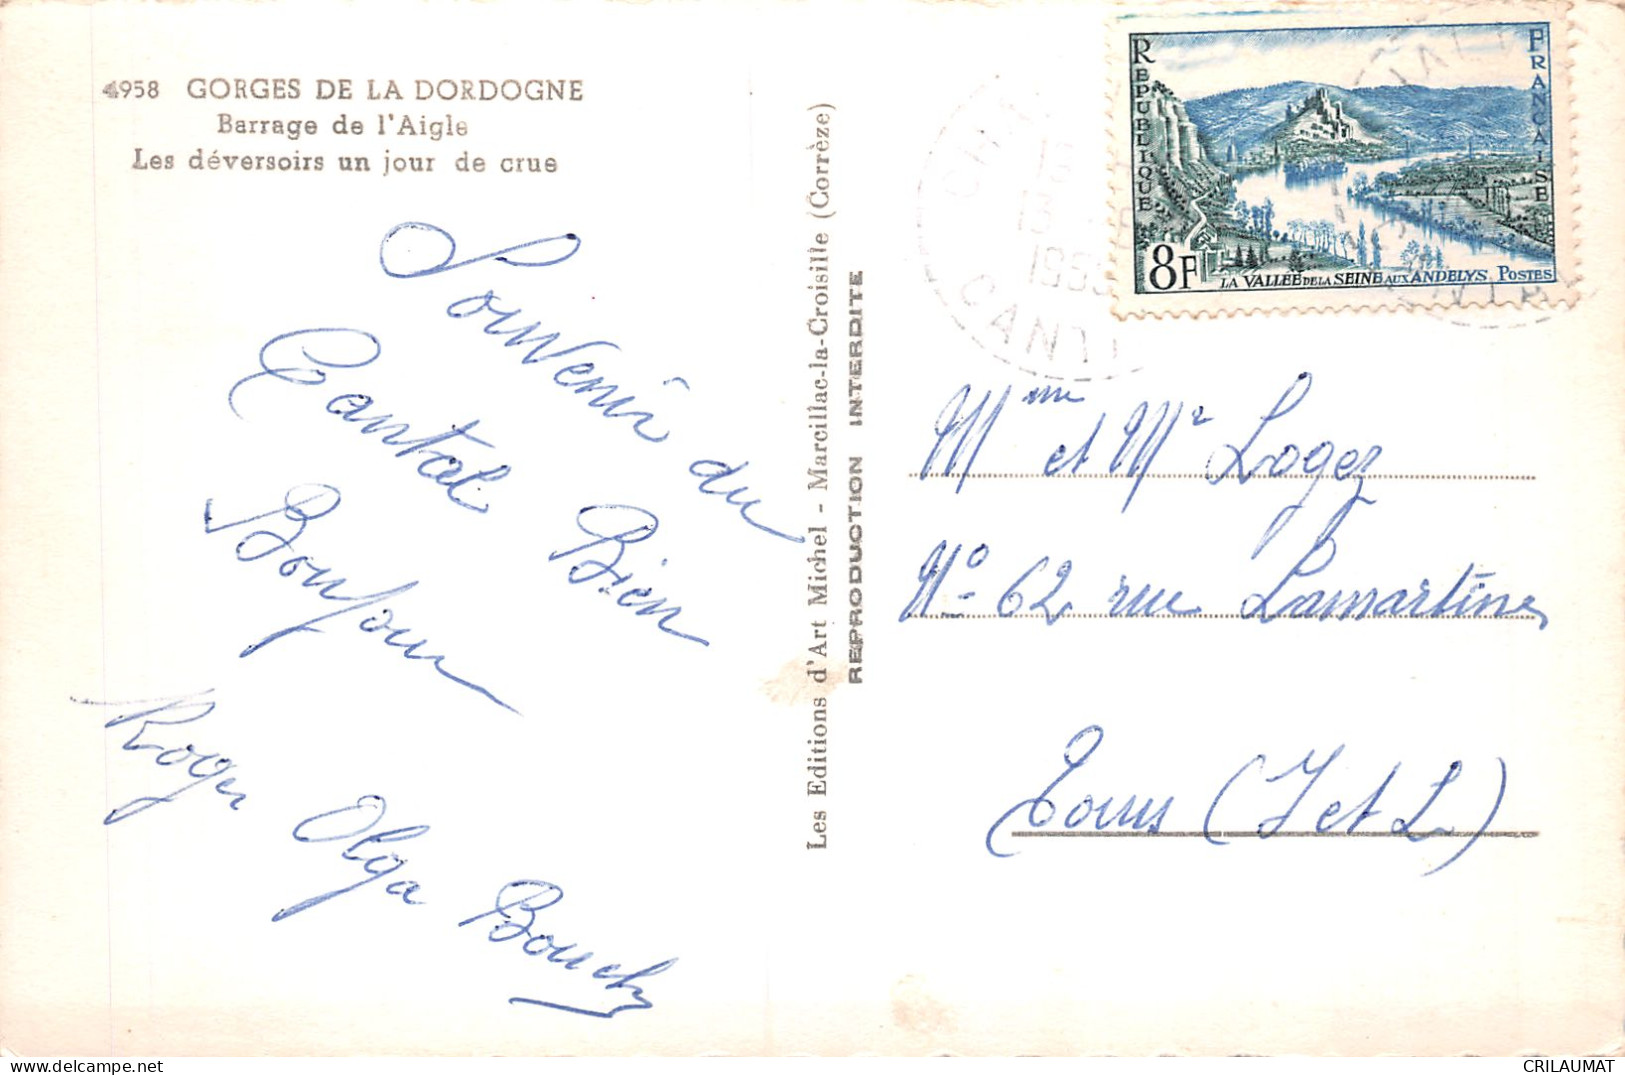 4958 GORGES DE LA DORDOGNE
Barrage de l'Aigle
Les déversoirs un jour de crue
Souvenir du
Cantal Bien
Bonjour
Roger Olga Bouchy
Les Editions d'Art Michel - Marcillac-la-Croisille (Corrèze)
REPRODUCTION INTERDITE
REPUBLIQUE FRANÇAISE
8F LA VALLÉE DE LA SEINE AUX ANDELYS POSTES
13
1955
CANT
Mme et Mr Loger
No 62 rue Lamartine
Tours (I et L)
CRILAUMAT